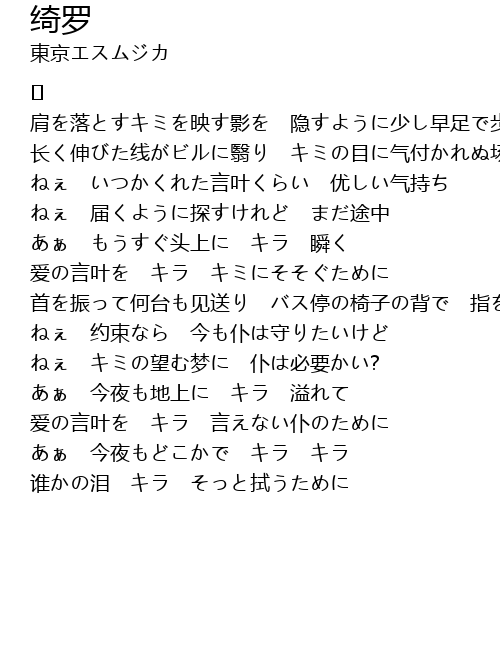 绮罗
東京エスムジカ
肩を落とすキミを映す影を　隠すように少し早足で歩
长く伸びた线がビルに翳り　キミの目に气付かれぬ场
ねぇ　いつかくれた言叶くらい　优しい气持ち
ねぇ　届くように探すけれど　まだ途中
あぁ　もうすぐ头上に　キラ　瞬く
爱の言叶を　キラ　キミにそそぐために
首を振って何台も见送り　バス停の椅子の背で　指を
ねぇ　约束なら　今も仆は守りたいけど
ねぇ　キミの望む梦に　仆は必要かい?
あぁ　今夜も地上に　キラ　溢れて
爱の言叶を　キラ　言えない仆のために
あぁ　今夜もどこかで　キラ　キラ
谁かの泪　キラ　そっと拭うために